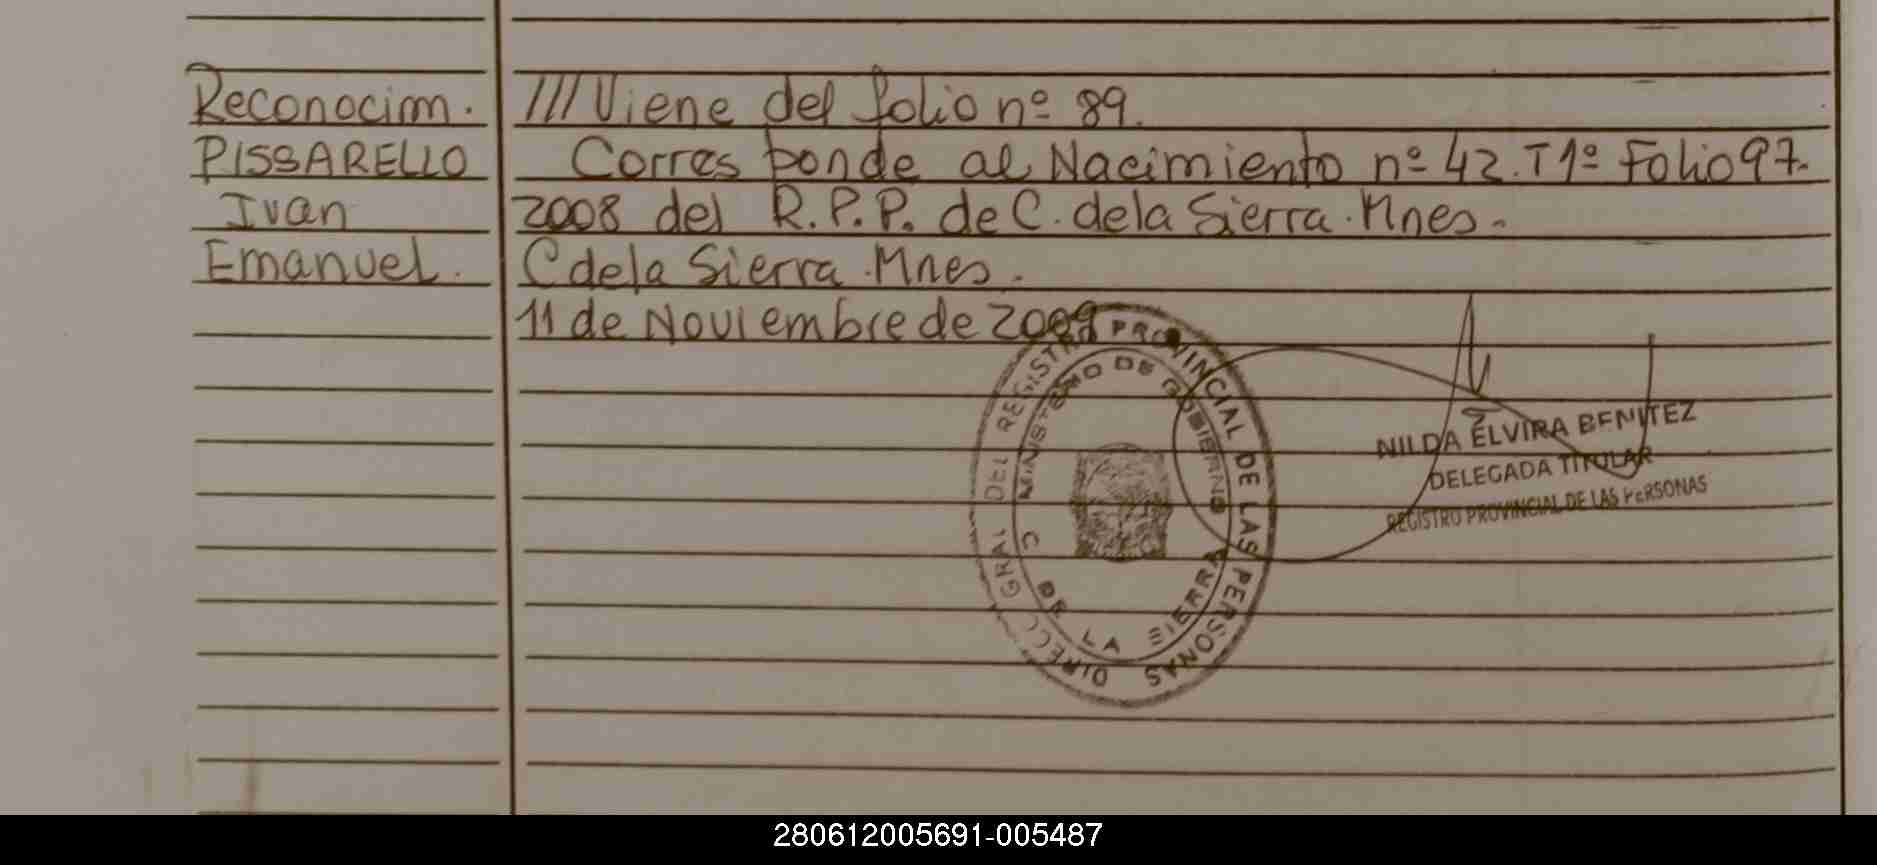 Reconocim.
PISSARELLO
Ivan
Emanuel.
/// Viene del folio nº 89.
Corresponde al Nacimiento nº 42. T 1º Folio 97.
2008 del R.P.P. de C. de la Sierra. Mnes.
C de la Sierra. Mnes.
11 de Noviembre de 2009
DIRECC GRAL DEL REGISTRO PROVINCIAL DE LAS PERSONAS
MINISTERIO DE GOBIERNO
C DE LA SIERRA
NILDA ELVIRA BENITEZ
DELEGADA TITULAR
REGISTRO PROVINCIAL DE LAS PERSONAS
280612005691-005487